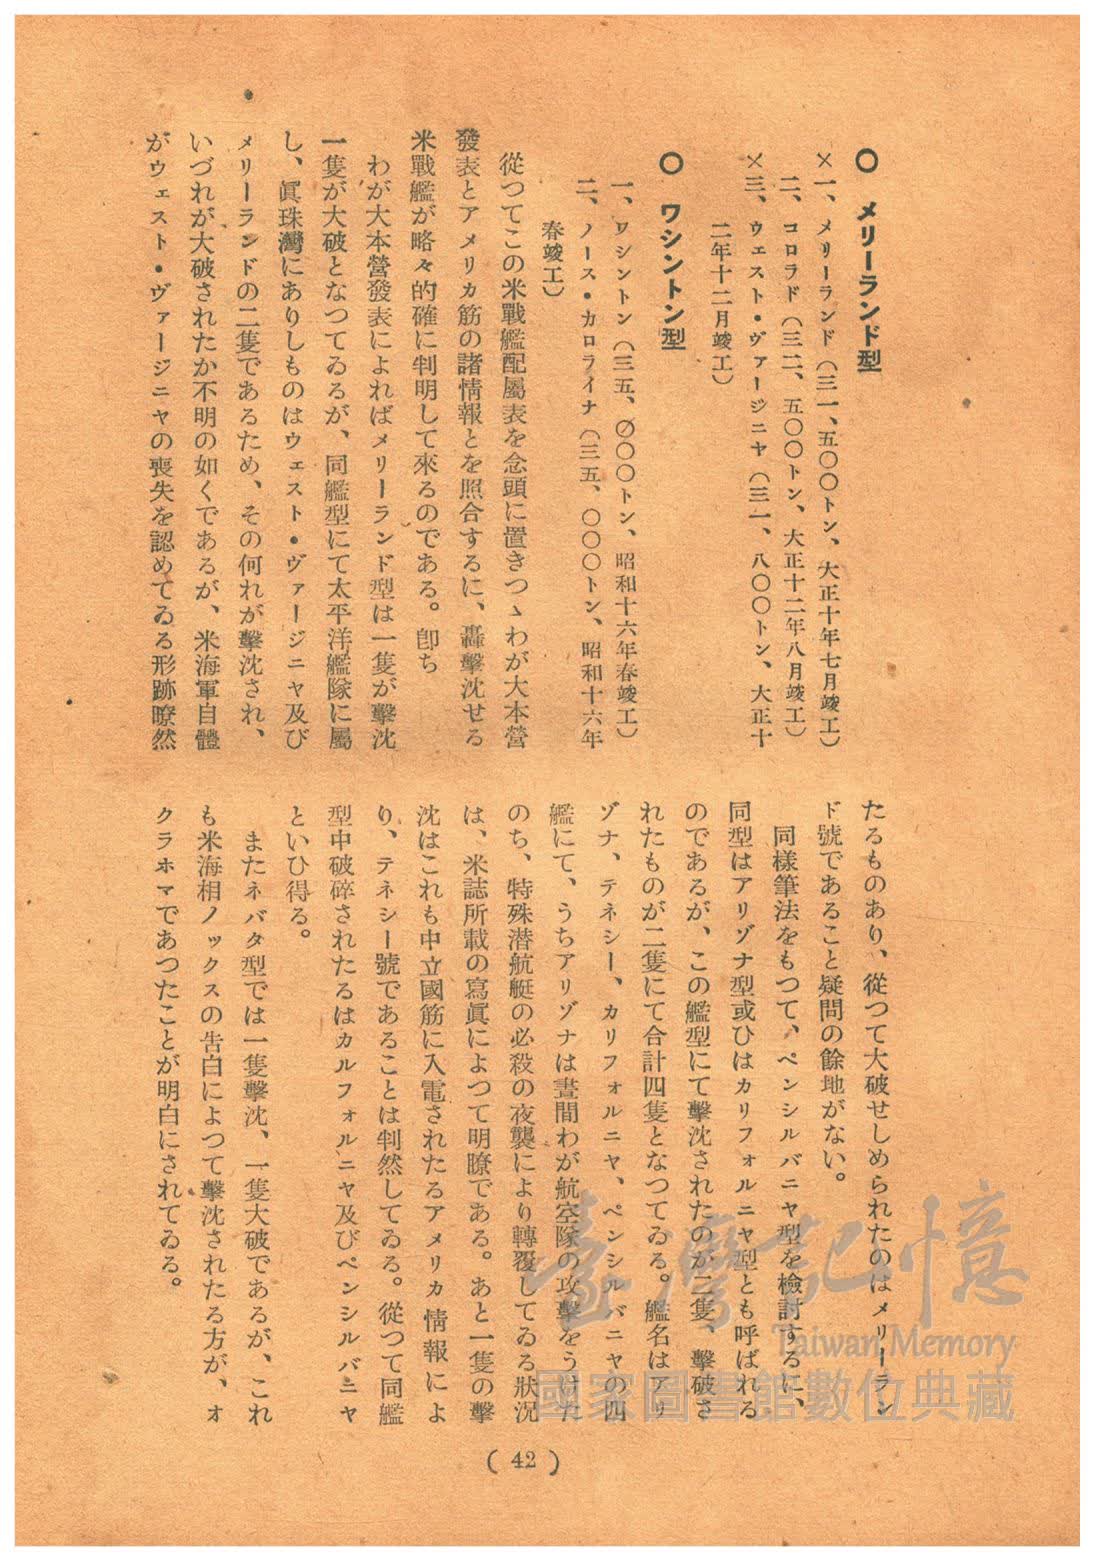 ○ メリーランド型
×一、メリーランド（三一、五〇〇トン、大正十年七月竣工）
二、コロラド（三二、五〇〇トン、大正十二年八月竣工）
×三、ウェスト・ヴァージニヤ（三一、八〇〇トン、大正十
二年十二月竣工）
○ ワシントン型
一、ワシントン（三五、〇〇〇トン、昭和十六年春竣工）
二、ノース・カロライナ（三五、〇〇〇トン、昭和十六年
春竣工）
從つてこの米戰艦配屬表を念頭に置きつゝわが大本營
發表とアメリカ筋の諸情報とを照合するに、轟擊沈せる
米戰艦が略々的確に判明して來るのである。卽ち
わが大本營發表によればメリーランド型は一隻が擊沈
一隻が大破となつてゐるが、同艦型にて太平洋艦隊に屬
し、眞珠灣にありしものはウェスト・ヴァージニヤ及び
メリーランドの二隻であるため、その何れが擊沈され、
いづれが大破されたか不明の如くであるが、米海軍自體
がウェスト・ヴァージニヤの喪失を認めてゐる形跡瞭然
たるものあり、從つて大破せしめられたのはメリーラン
ド號であること疑問の餘地がない。
同樣筆法をもつて、ペンシルバニヤ型を檢討するに、
同型はアリゾナ型或ひはカリフォルニヤ型とも呼ばれる
のであるが、この艦型にて擊沈されたのが二隻、擊破さ
れたものが二隻にて合計四隻となつてゐる。艦名はアリ
ゾナ、テネシー、カリフォルニヤ、ペンシルバニヤの四
艦にて、うちアリゾナは晝間わが航空隊の攻擊をうけた
のち、特殊潜航艇の必殺の夜襲により轉覆してゐる狀況
は、米誌所載の寫眞によつて明瞭である。あと一隻の擊
沈はこれも中立國筋に入電されたるアメリカ情報によ
り、テネシー號であることは判然してゐる。從つて同艦
型中破碎されたるはカルフォルニヤ及びペンシルバニヤ
といひ得る。
またネバタ型では一隻擊沈、一隻大破であるが、これ
も米海相ノックスの告白によつて擊沈されたる方が、オ
クラホマであつたことが明白にされてゐる。
( 42 )
臺灣記憶
Taiwan Memory
國家圖書館數位典藏